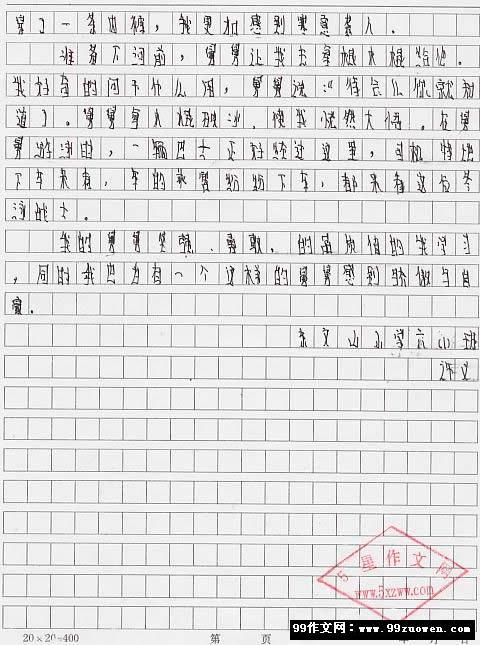 穿了一条内裤，我更加感到寒意袭人。
准备下河前，舅舅让我去拿根木棍给他。
我好奇的问干什么用，舅舅说：“待会儿你就知
道了。舅舅拿木棍破冰，使我恍然大悟。在舅
舅游泳时，一辆巴士还好经过这里，司机特地
下车来看，车的乘客纷纷下车，都来看这位冬
泳勇士。
我的舅舅坚强、勇敢，的品质值的我学习
，同时我也为有一个这样的舅舅感到骄傲与自
豪。
文山小学六(1)班
许
5星作文网
www.5xzww.com
20×20=400 第 页 年 月 日
99作文网：www.99zuowen.com